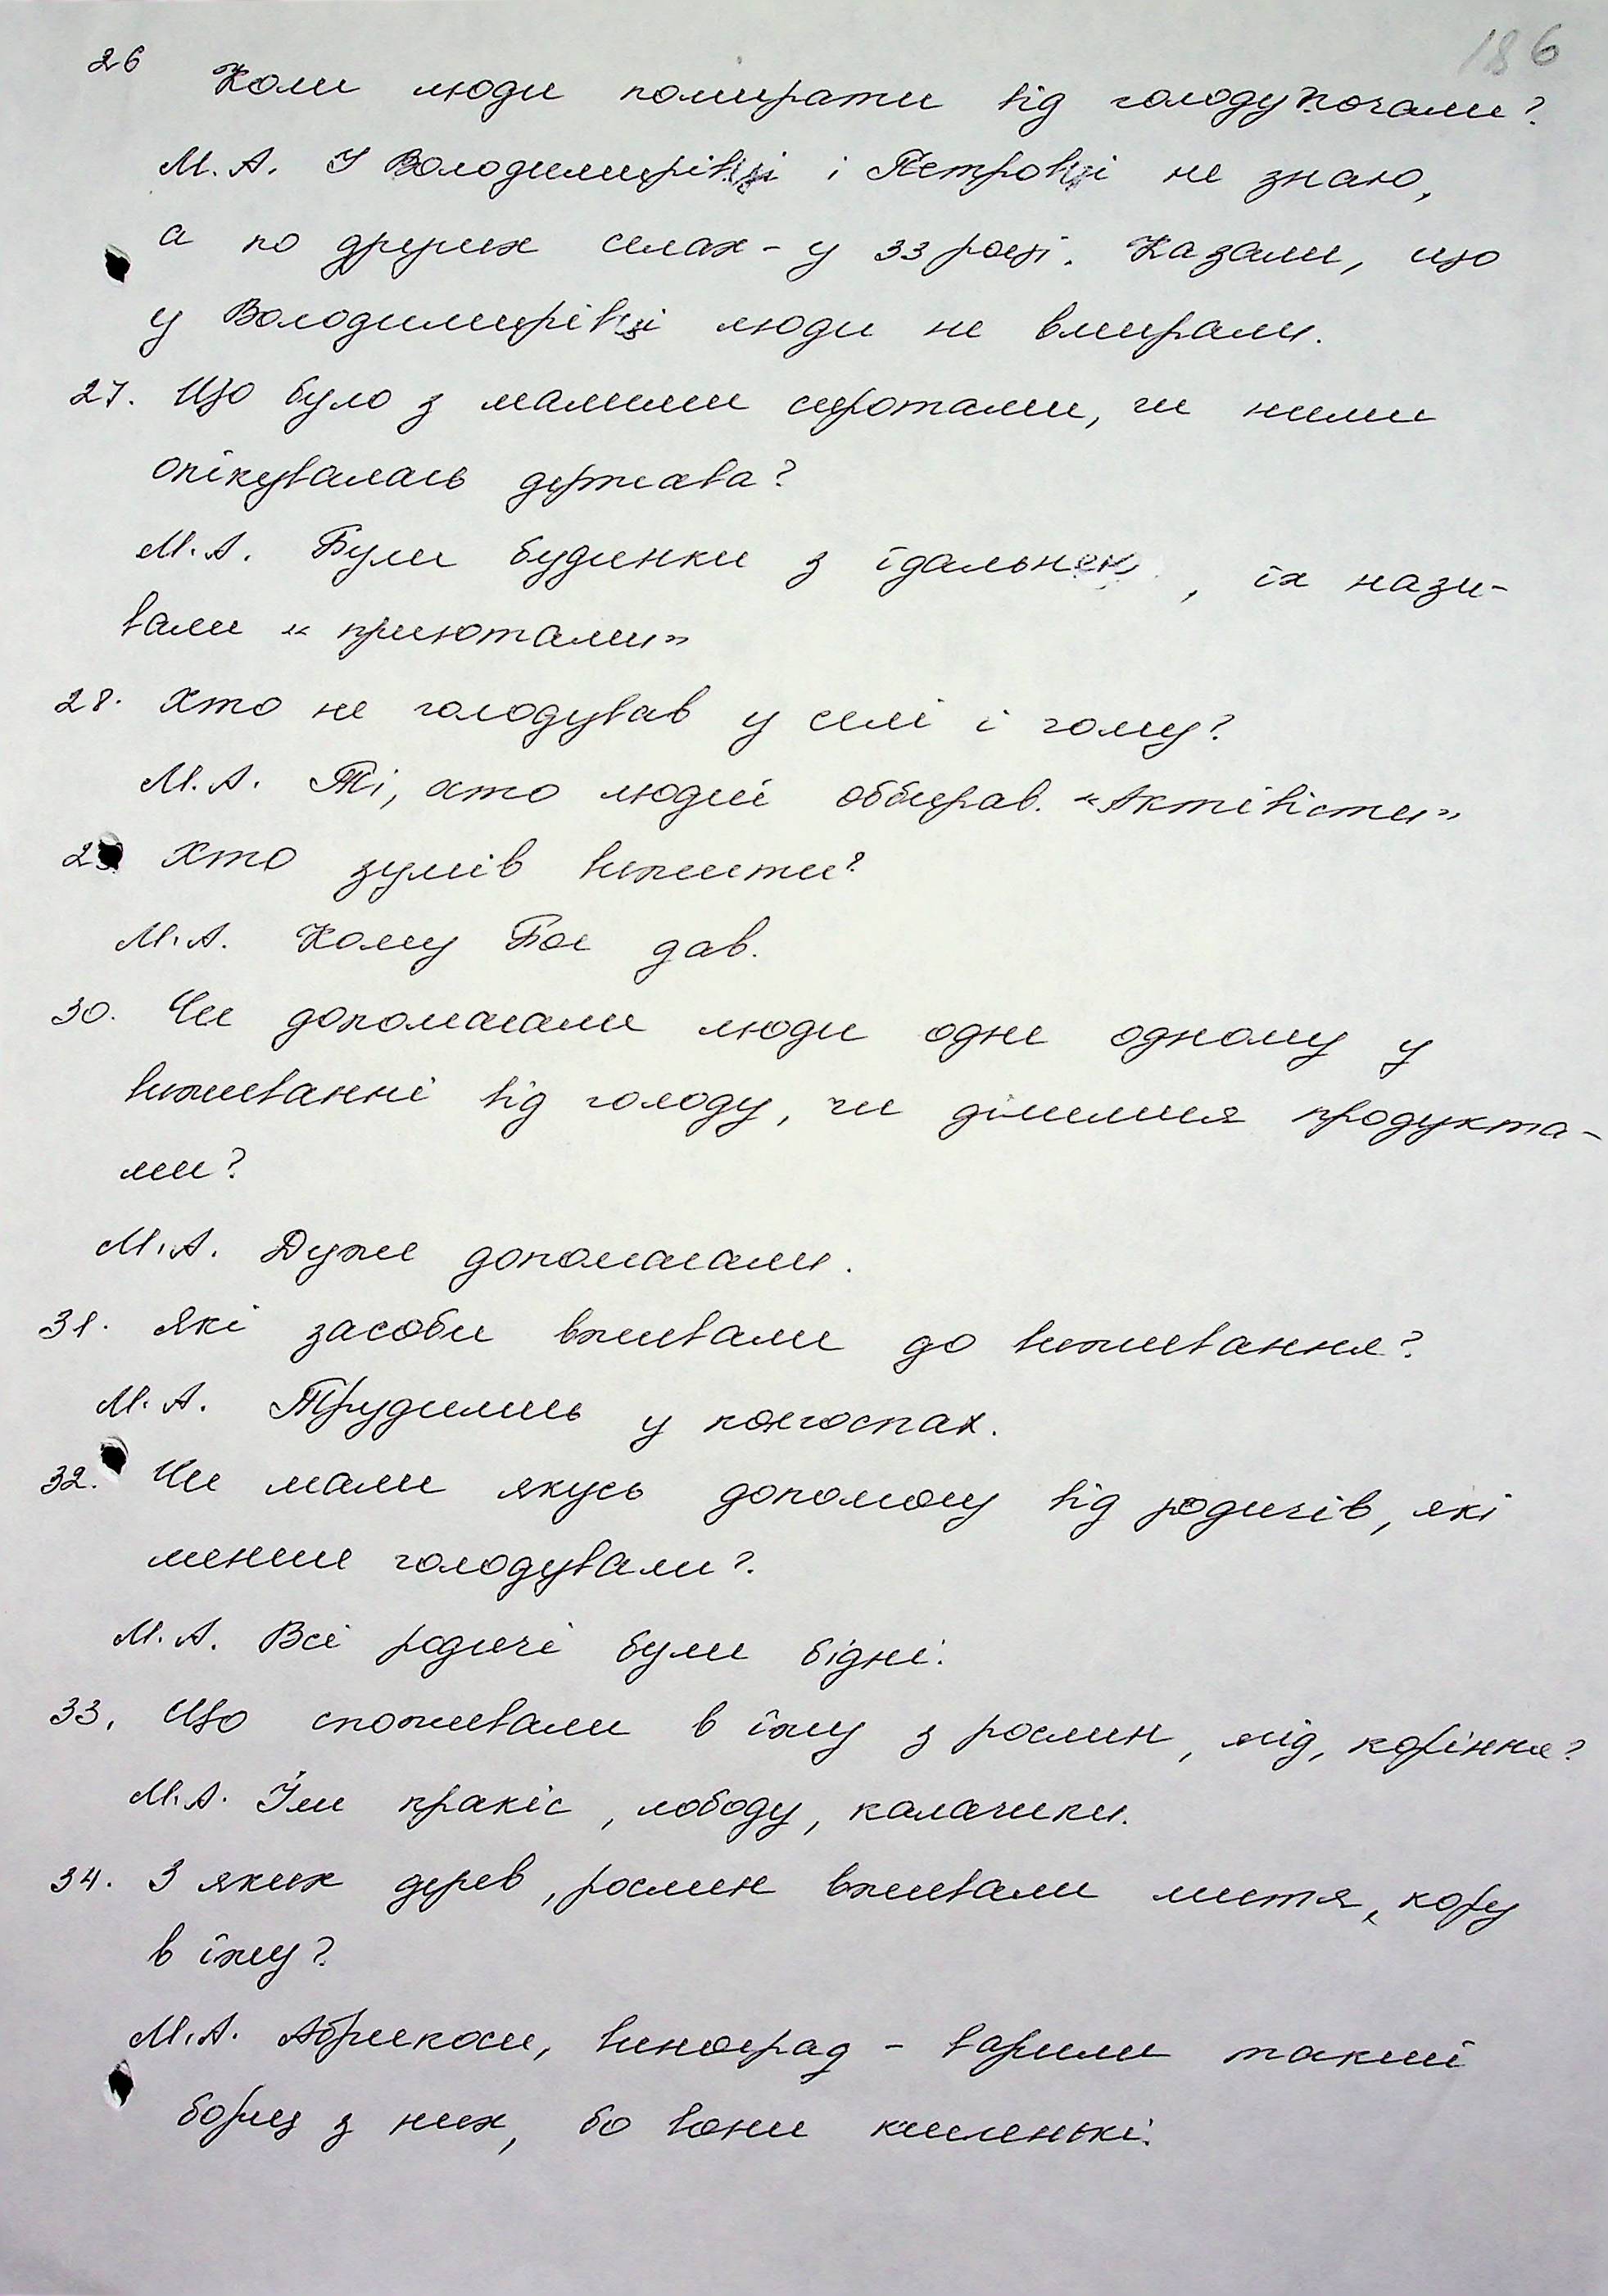 186
26 Коли люди помирати від голоду почали?
М. А. У Володимирівці і Петровці не знаю,
а по других селах - у 33 році. Казали, що
у Володимирівці люди не вмирали.
27. Що було з малими сиротами, чи ними
опікувалась держава?
М. А. Були будинки з їдальнею, їх нази-
вали "приютами"
28. Хто не голодував у селі і чому?
М. А. Ті, хто людей оббирав. "Актівісти"
29 Хто зумів вижити?
М. А. Кому Бог дав.
30. Чи допомагали люди одне одному у
виживанні від голоду, чи ділилися продукта-
ми?
М. А. Дуже допомагали.
31. Які засоби вживали до виживання?
М. А. Трудились у колгоспах.
32. Чи мали якусь допомогу від родичів, які
менше голодували?
М. А. Всі родичі були бідні.
33. Що споживали в їжу з рослин, ягід, коріння?
М. А. Їли кракіс, лободу, калачики.
34. З яких дерев, рослин вживали листя, кору
в їжу?
М. А. Абрикоси, виноград - варили такий
борщ з них, бо вони кисленькі.